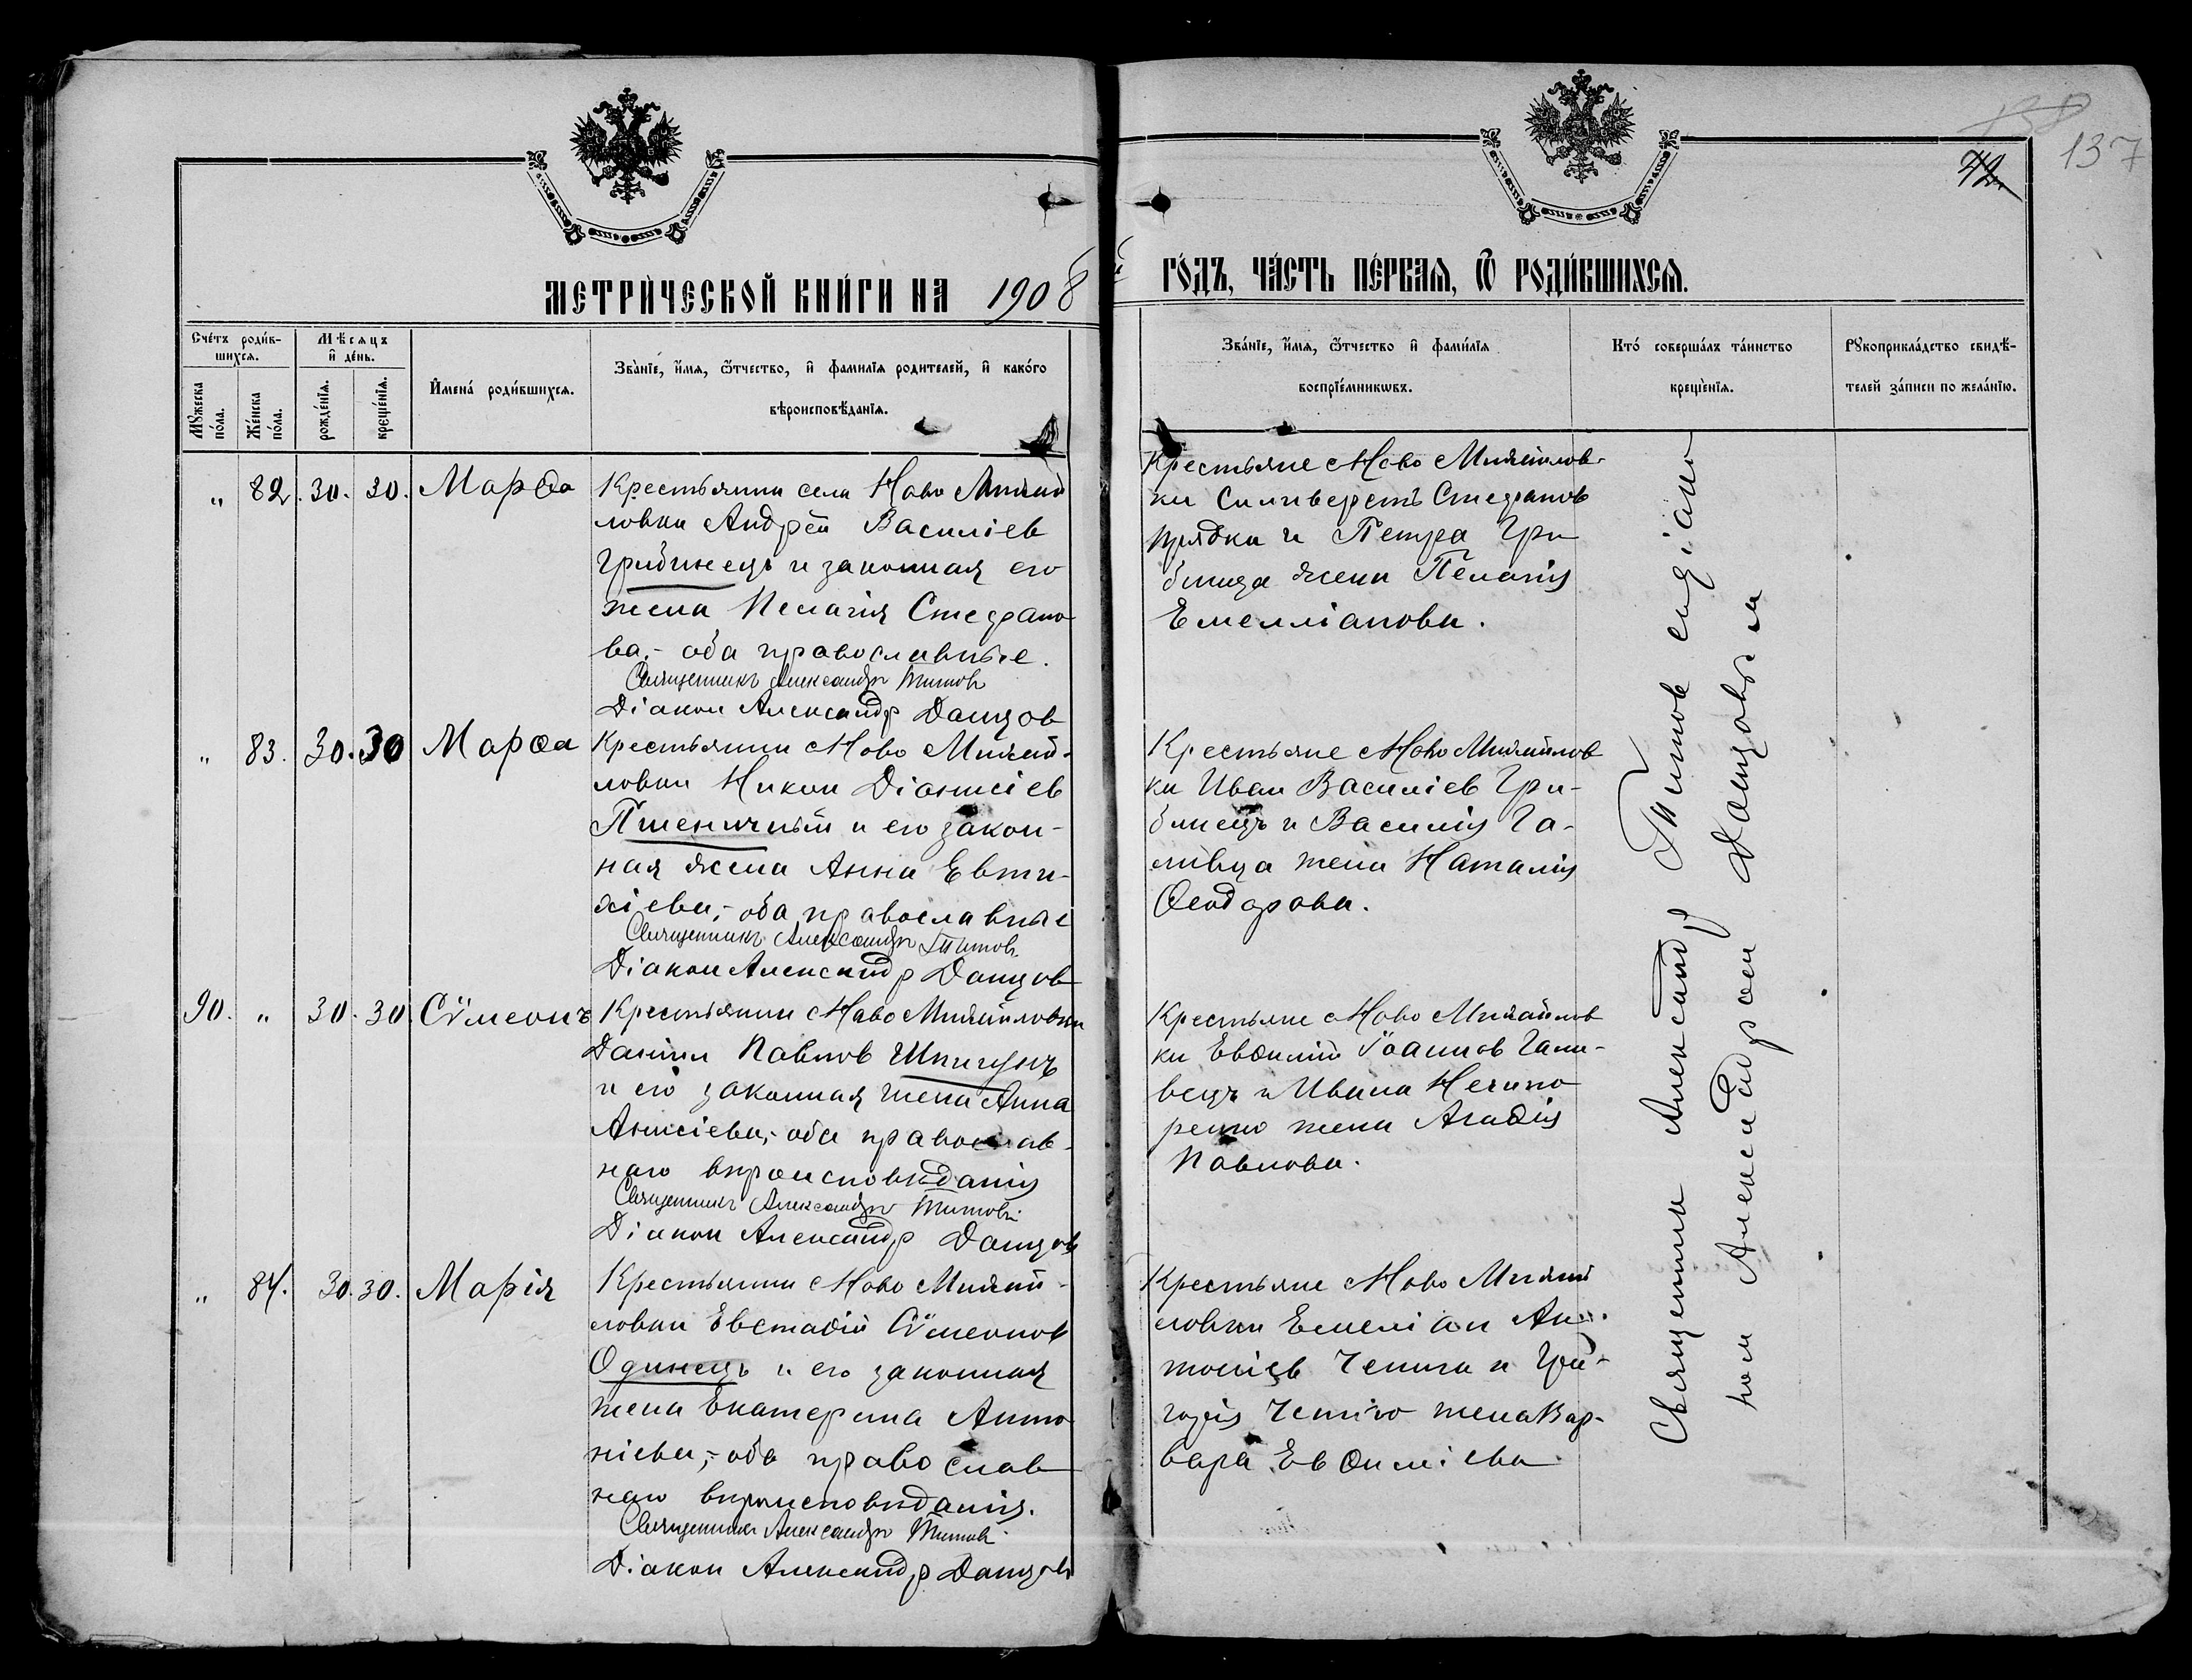 МЕТРИ́ЧЕСКОЙ КНИ́ГИ НА 1908
й ГО́ДЪ, ЧА́СТЬ ПЕ́РВАѦ, Ѿ РОДИ́ВШИХСѦ.
42
137
Сче́тъ роди́в-
шихсѧ.
Мꙋжеска
по́ла.
Же́нска
по́ла.
Мѣ́сѧцъ
и҆ де́нь.
рожде́нїѧ.
креще́нїѧ.
И҆мена́ роди́вшихсѧ.
Зва́нїе, и҆́мѧ, ѻ҆́тчество, и҆ фами́лїѧ родителей, и҆ како́го
вѣроисповѣ́данїѧ.
Зва́нїе, и҆́мѧ, ѻ҆́тчество и҆ фами́лїѧ
воспрїе́мникѡвъ.
Кто́ соверша́лъ та́инство
креще́нїѧ.
Рꙋкоприкла́дство свидѣ́-
телей за́писи по жела́нїю.
" 82. 30. 30. Марѳа
Крестьянин села Ново Михай
ловки Андрей Василіев
Грибинецъ и законная его
жена Пелагія Стефано
ва,- оба православные.
Священникъ Александръ Титовъ
Діакон Александр Данцов
Крестьяне Ново Михайлов-
ки Силиверстъ Стефанов
Прядка и Петра Гри
бинца жена Пелагія
Емелліанова.
" 83. 30. 30 Марѳа
Крестьянин Ново Михай-
ловки Никон Діонисіев
Пшеничный и его закон-
ная жена Анна Евти-
хіева,- оба православные
Священникъ Александръ Титовъ
Діакон Александр Данцов
Крестьяне Ново Михайлов
ки Иван Василіев Гри-
бинецъ и Василія Га-
ливца жена Наталія
Ѳеодорова.
90. " 30. 30. Сѵмеонъ
Крестьянин Ново Михайловки
Даніил Павлов Шпигунъ
и его законная жена Анна
Анисіева,- оба православ-
наго вѣроисповѣданія
Священникъ Александръ Титовъ
Діакон Александр Данцовъ
Крестьяне Ново Михайлов
ки Евѳимій Іоаннов Гали-
вецъ и Ивана Нечипо
ренко жена Агаѳія
Павлова.
" 84. 30. 30. Марія
Крестьянин Ново Михай-
ловки Евстаѳій Сѵмеонов
Одинецъ и его законная
жена Екатерина Анто
ніева,- оба православ
наго вѣроисповѣданія.
Священникъ Александръ Титовъ
Діакон Александр Данцовъ
Крестьяне Ново Михай
ловки Емеліан Ан-
тоніев Чепига и Гри-
горія жена Вар-
вара Евѳиміева
Священник Александр Титов с діако
ном Александром Данцовым